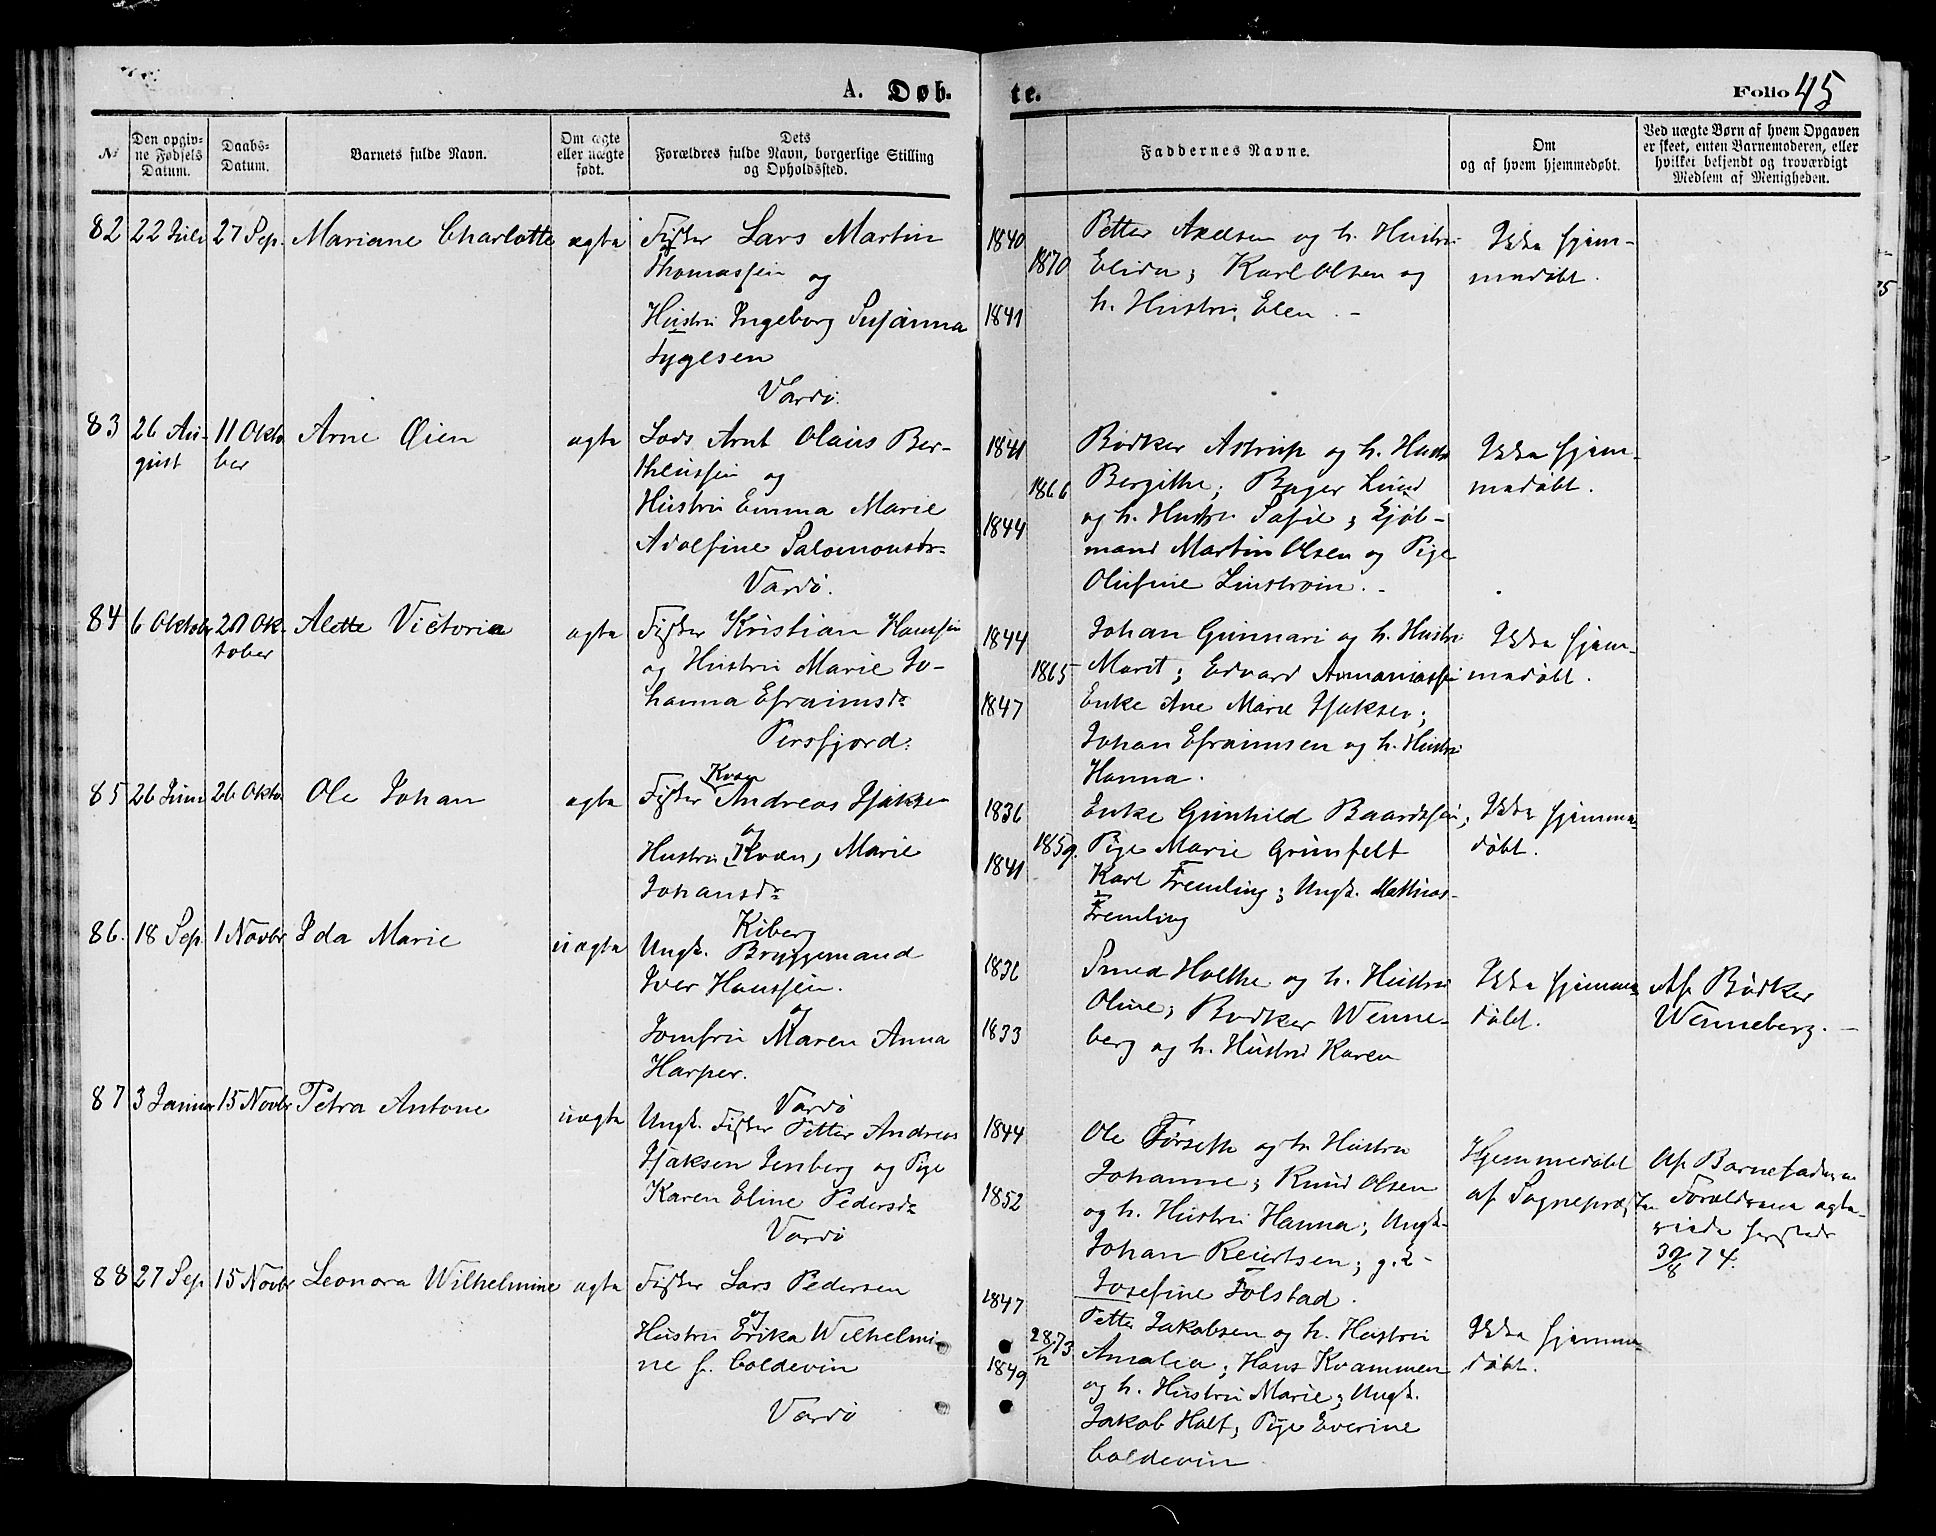 A. Døb.
te.
Folio 45
№
Den opgiv-
ne Fødsels
Datum.
Daabs-
Datum.
Barnets fulde Navn.
Om ægte
eller uægte
født.
Dets
Forældres fulde Navn, borgerlige Stilling
og Opholdssted.
Faddernes Navne.
Om
og af hvem hjemmedøbt.
Ved uægte Børn af hvem Opgaven
er skeet, enten Barnemoderen, eller
hvilket betjendt og troværdigt
Medlem af Menigheden.
82 22 Juli 27 Sep. Mariane Charlotte ægte
Fisker Lars Martin
Thomassen
og
Hustru Ingeborg Susanna
Tygesen
Vardø.
1840
1870
1841
Petter Axelsen og h. Hustru
Elida; Karl Olsen og
h. Hustru Elen. -
Ikke hjem-
medøbt.
83 26 Au-
gust
11 Okto
ber
Arne Øien ægte
Lods Arnt Olaus Ber-
theussen
og
Hustru Emma Marie
Adolfine Salomonsdr.
Vardø.
1841
1866
1844
Bødker Astrup og h. Hustr
Bergithe; Bager Lund
og h. Hustru Sofie; Kjøb-
mand Martin Olsen og Pige
Olufine Linstrøm. -
Ikke hjem-
medøbt.
84 6 Oktober 20 Ok-
tober
Alette Victoria ægte
Fisker Kristian Hanssen
og Hustru Marie Jo-
hanna Efraimsdr
Persfjord.
1844
1865
1847
Johan Gunnari og h. Hustru
Marit; Edvard Annaniassen
Enke Ane Marie Isaksen;
Johan Efraimsen og h. Hustru
Hanna.
Ikke hjem-
medøbt.
85 26 Juni 26 Okto. Ole Johan ægte
Kvæn
Fisker Andreas Isaksen
og
Hustru Kvæn, Marie
Johansdr
Kiberg
1836
1859.
1841
Enke Gunhild Baardsen;
Pige Marie Grunfelt
Karl Fremling; Ungk. Mathias
Fremling
Ikke hjemme-
døbt.
86. 18 Sep. 1 Novbr Ida Marie uægte
Ungk. Bryggemand
Iver Hanssen.
og
Jomfru Maren Anna
Harper.
Vardø
1836
1833
Smed Holthe og h. Hustru
Oline; Bødker Wenne-
berg og h. Hustru Karen
Ikke hjemme-
døbt.
Af Bødker
Wenneberg. -
87 3 Januar 15 Novbr Petra Antone uægte
Ungk. Fisker Petter Andreas
Isaksen Isenberg og Pige
Karen Eline Pedersdr
Vardø
1844
1852
Ole Førseth og h. Hustru
Johanne; Knud Olsen
og h. Hustru Hanna; Ungk.
Johan Reiertsen; g. K
Josefine Folstad.
Hjemmedøbt
af Sognepræsten
Af Barnefaderen
Forældrene ægte-
viede
30/8 74.
88 27 Sep 15 Novbr Leonora Wilhelmine ægte
Fisker Lars Pedersen
og
Hustru Erika Wilhelmi-
ne f. Coldevin
Vardø
1847
28/12 73
1849
Petter Jakobsen og h. Hustru
Amalia; Hans Kvammen
og h. Hustru Marie; Ungk.
Jakob Holt; Pige Everine
Coldevin
Ikke hjemme-
døbt.